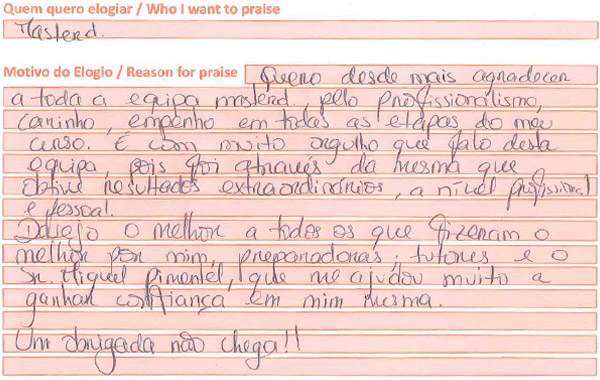 Quem quero elogiar / Who I want to praise
Masterd.
Motivo do Elogio / Reason for praise Quero desde mais agradecer
a toda a equipa masterd, pelo profissionalismo,
carinho, empenho em todas as etapas do meu
curso. É com muito orgulho que falo desta
equipa, pois foi através da mesma que
obtive resultados extraordinários, a nível profissional
e pessoal.
Desejo o melhor a todos os que fizeram o
melhor por mim, preparadoras, tutores e o
Sr. Miguel Pimentel, que me ajudou muito a
ganhar confiança em mim mesma.
Um obrigada não chega!!